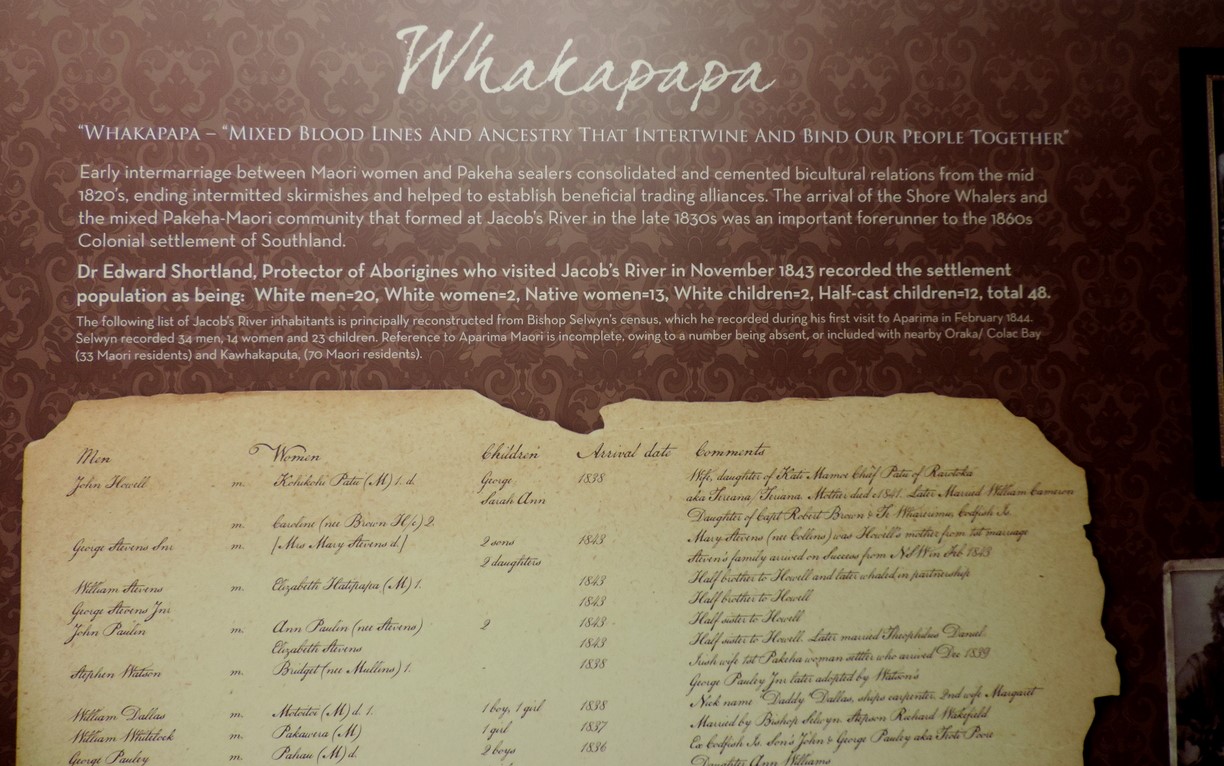 Whakapapa
"Whakapapa – "Mixed Blood Lines And Ancestry That Intertwine And Bind Our People Together"
Early intermarriage between Maori women and Pakeha sealers consolidated and cemented bicultural relations from the mid
1820's, ending intermitted skirmishes and helped to establish beneficial trading alliances. The arrival of the Shore Whalers and
the mixed Pakeha-Maori community that formed at Jacob's River in the late 1830s was an important forerunner to the 1860s
Colonial settlement of Southland.
Dr Edward Shortland, Protector of Aborigines who visited Jacob's River in November 1843 recorded the settlement
population as being: White men=20, White women=2, Native women=13, White children=2, Half-cast children=12, total 48.
The following list of Jacob's River inhabitants is principally reconstructed from Bishop Selwyn's census, which he recorded during his first visit to Aparima in February 1844.
Selwyn recorded 34 men, 14 women and 23 children. Reference to Aparima Maori is incomplete, owing to a number being absent, or included with nearby Oraka/ Colac Bay
(33 Maori residents) and Kawhakaputa, (70 Maori residents).
Men Women Children Arrival date Comments
John Howell m. Kohikohi Patu (M) 1. d. George 1838 Wife, daughter of Kati Mamoe Chief Patu of Raratoka
Sarah Ann aka Teruana/Teruana. Mother died c1841. Later Married William Cameron
m. Caroline (nee Brown H/c) 2. Daughter of Capt Robert Brown & Te Wharerimu, Codfish Is.
George Stevens Snr m. [Mrs Mary Stevens d.] 2 sons 1843 Mary Stevens (nee Collins) was Howell's mother from 1st marriage
2 daughters Steven's family arrived on Success from NSW in Feb 1843
William Stevens m. Elizabeth Hatipapa (M) 1. 1843 Half brother to Howell and later whaled in partnership
George Stevens Jnr 1843 Half brother to Howell
John Paulin m. Ann Paulin (nee Stevens) 2 1843 Half sister to Howell
Elizabeth Stevens 1843 Half sister to Howell. Later married Theophilus Daniel.
Stephen Watson m. Bridget (nee Mullens) 1. - 1838 Irish wife 1st Pakeha woman settler who arrived Dec 1839
George Pauley Jnr later adopted by Watson's
William Dallas m. Motoitoi (M) d. 1. 1 boy, 1 girl 1838 Nick name "Daddy" Dallas, ships carpenter. 2nd wife Margaret
William Whitelock m. Pakawera (M) 1 girl 1837 Married by Bishop Selwyn. Stepson Richard Wakefield
George Pauley m. Pahau (M) d. 2 boys 1836 Ex Codfish Is. Son's John & George Pauley aka Tooti Poore
Daughter Ann Williams